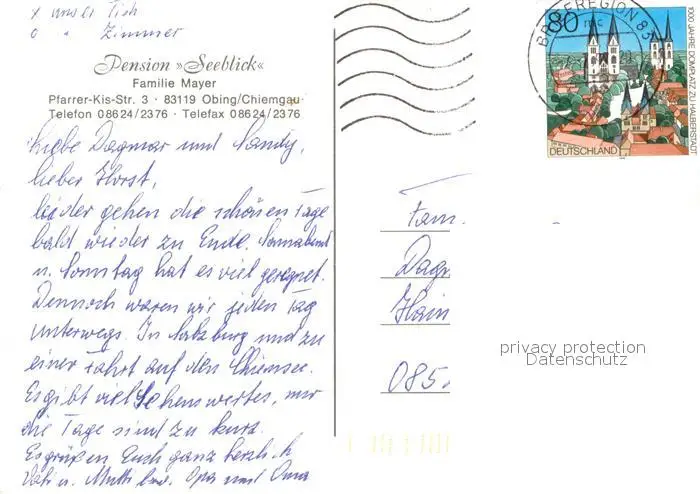 x unser Tisch
o " Zimmer
Pension »Seeblick«
Familie Mayer
Pfarrer-Kis-Str. 3 · 83119 Obing/Chiemgau
Telefon 08624/2376 · Telefax 08624/2376
Liebe Dagmar und Sandy,
lieber Horst,
leider gehen die schönen Tage
bald wieder zu Ende. Sonnabend
u. Sonntag hat es viel geregnet.
Dennoch waren wir jeden Tag
unterwegs. In Salzburg und zu
einer Fahrt auf den Chiemsee.
Es gibt viel Sehenswertes, nur
die Tage sind zu kurz.
Es grüßen Euch ganz herzlich
Vati u. Mutti bzw. Opa und Oma
BRIEFREGION 83
80
1000 JAHRE DOMPLATZ ZU HALBERSTADT
DEUTSCHLAND
Fam.
Dag
Hain
085
privacy protection
Datenschutz